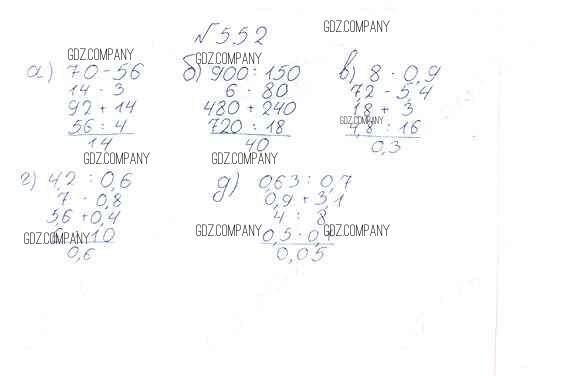 GDZ.COMPANY
№552
GDZ.COMPANY GDZ.COMPANY
а) 70 - 56 б) 900 : 150 в) 8 · 0,9
14 · 3 6 · 80 7,2 - 5,4
92 + 14 480 + 240 1,8 + 3
56 : 4 720 : 18 4,8 : 16
14 40 0,3
GDZ.COMPANY
GDZ.COMPANY GDZ.COMPANY
г) 4,2 : 0,6 д) 0,63 : 0,7
7 · 0,8 0,9 + 3,1
5,6 + 0,4 4 : 8
10 0,5 · 0,1
GDZ.COMPANY GDZ.COMPANY GDZ.COMPANY
0,6 0,05